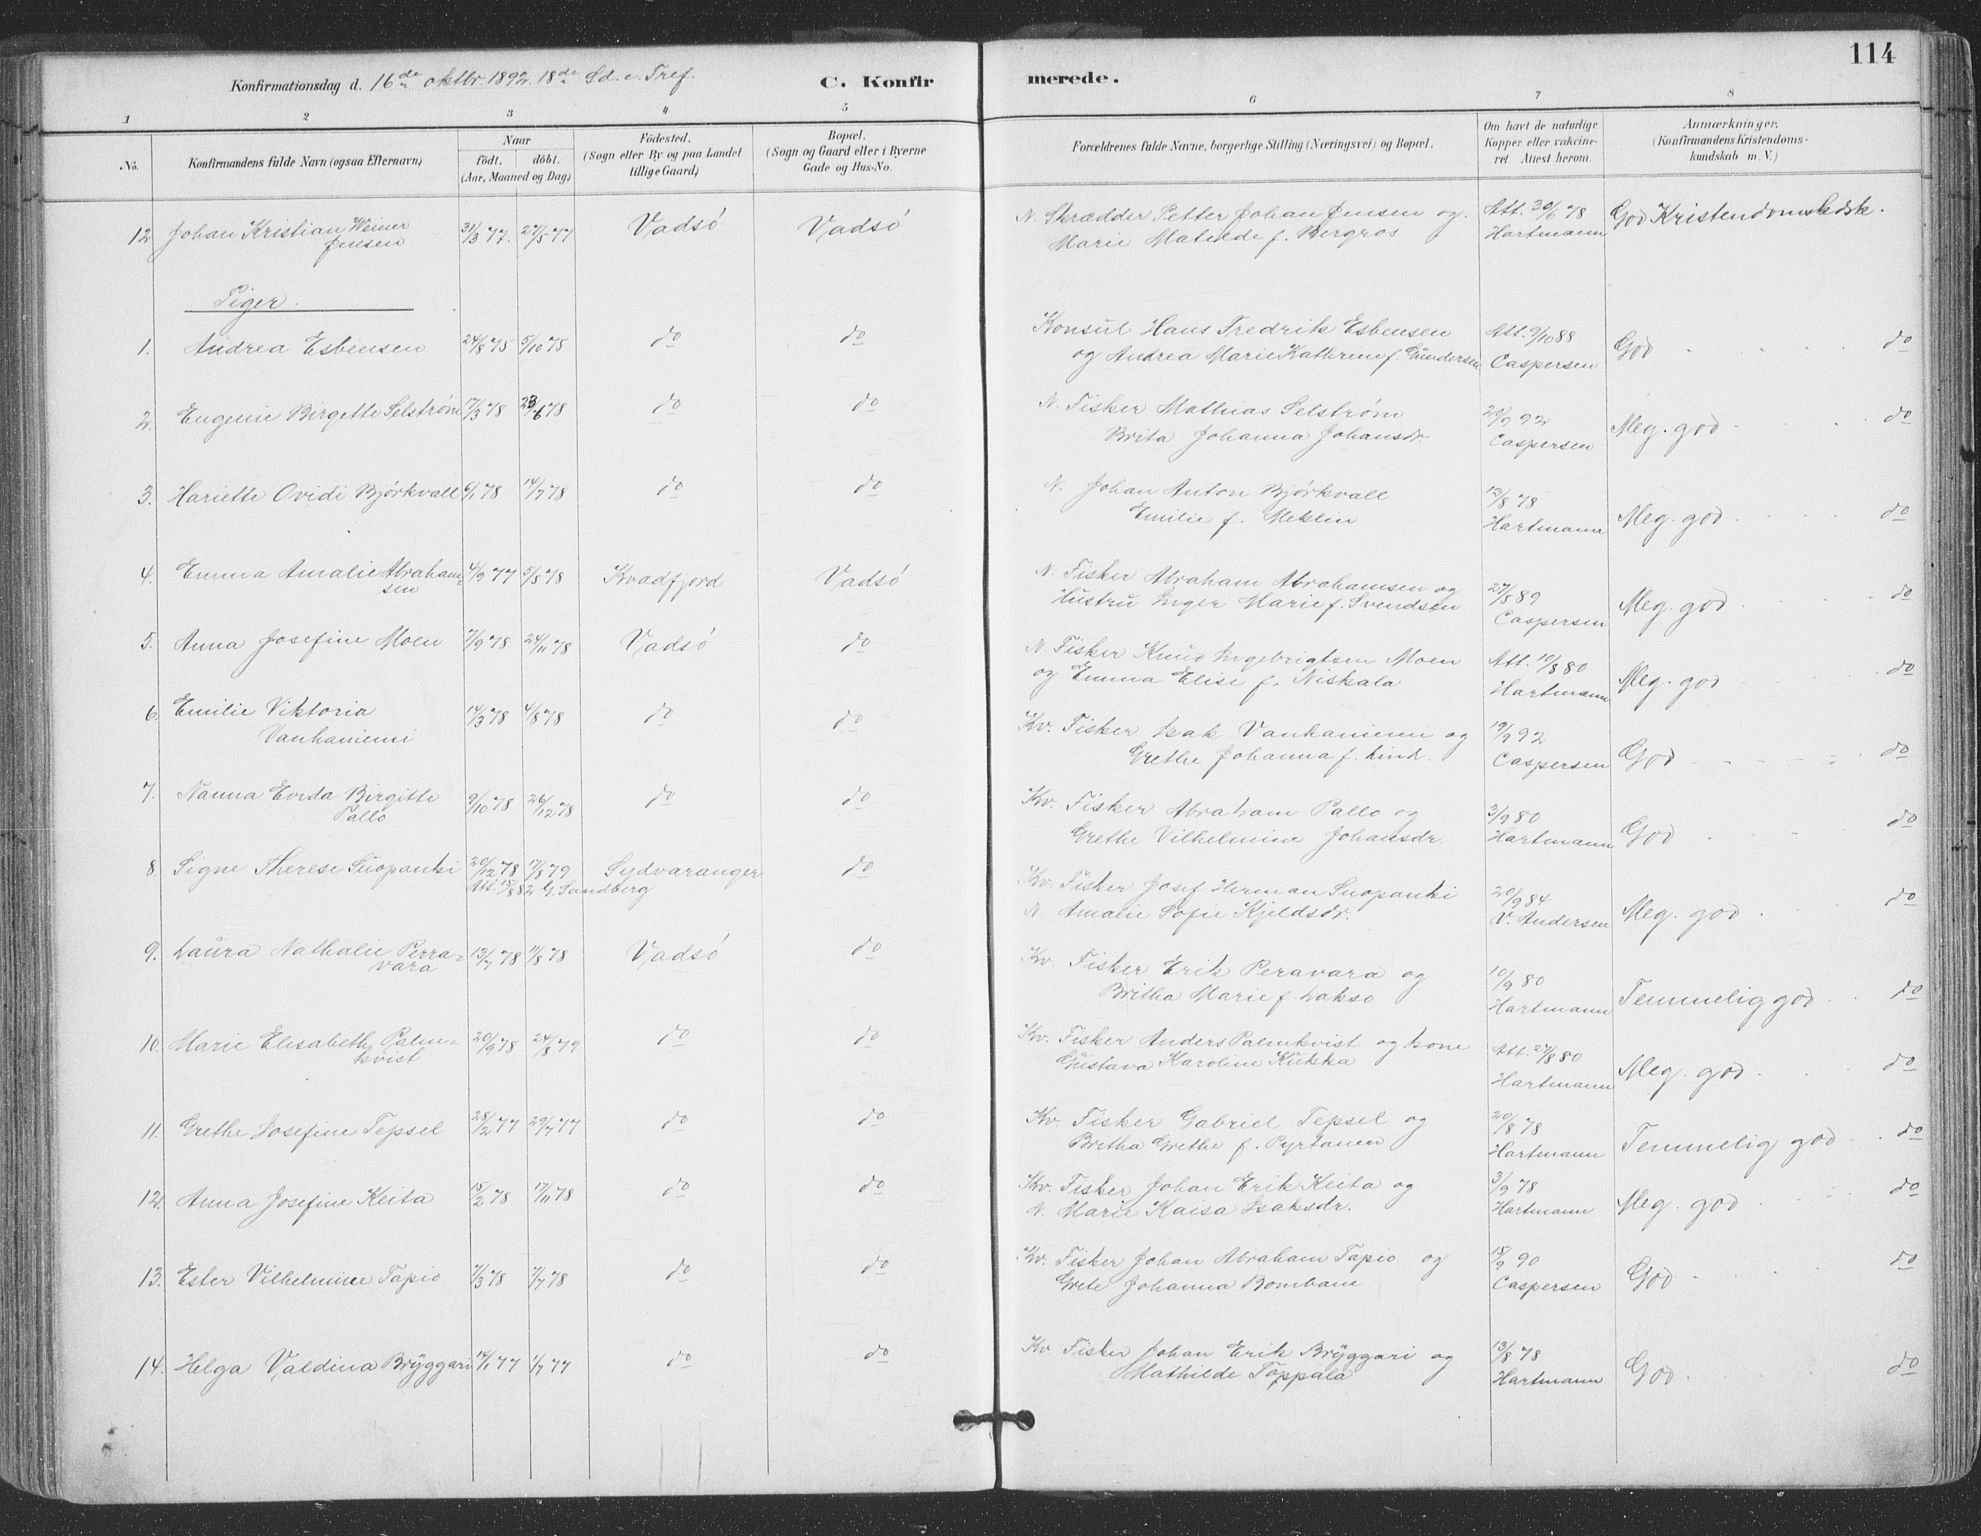 114
Konfirmationsdag d. 16de oktbr. 1892. 18de Sd. e. Tref.
C. Konfirmerede.
1 2 3 4 5 6 7 8
No. Konfirmandens fulde Navn (ogsaa Efternavn) Naar født, døbt. (Aar, Maaned og Dag) Fødested. (Sogn eller By og paa Landet tillige Gaard) Bopæl. (Sogn og Gaard eller i Byerne Gade og Hus-No. Forældrenes fulde Navne, borgerlige Stilling (Næringsvei) og Bopæl. Om havt de naturlige Kopper eller vakcineret. Attest herom. Anmærkninger. (Konfirmandens Kristendomskundskab m. V.)
12 Johan Kristian Weiner Jensen 31/3 77. 27/5 77 Vadsø Vadsø N. Skrædder Petter Johan Jensen og Att. 30/6 78 God Kristendomskdsk.
Marie Matilde f. Bergros Hartmann
Piger.
1. Andrea Esbensen 24/8 75 5/10 75 do do Konsul Hans Fredrik Esbensen Att. 9/10 88 God do
og Andrea Marie Kathrine f. Gundersen Caspersen
2. Eugenie Birgette Selstrøm 17/3 78 23/6 78 do do N. Fisker Mathias Selstrøm 20/9 92 Meg. god do
Brita Johanna Johansdr. Caspersen
3. Hariette Ovidi Bjørkvall 6/1 78 14/7 78 do do N. Johan Anton Bjørkvall 12/8 78 Meg. god do
Emilie f. Meklin Hartmann
4. Emma Amalie Abrahamsen 4/9 77 5/8 78 Kvadfjord Vadsø N. Fisker Abraham Abrahamsen og 27/5 89 Meg. god do
Hustru Inger Marie f. Svendsen Caspersen
5. Anna Josefine Moen 7/9 78 24/11 78 Vadsø do N. Fisker Knud Ingebrigtsen Moen Att. 10/8 80 Meg. god do
og Emma Elise f. Niskala Hartmann
6. Emilie Viktoria Vanhaniemi 14/3 78 4/8 78 do do Kv. Fisker Isak Vanhaniemi og 19/9 92 God do
Grethe Johanna f. Lind. Caspersen
7. Nanna Evida Birgitte Pallo 9/10 78 26/12 78 do do Kv. Fisker Abraham Pallo og 3/9 80 God do
Grethe Vilhelmine Johansdr. Hartmann
8. Signe Therese Suopanki 20/12 78 17/8 79 Sydvaranger do Kv. Fisker Josef Herman Suopanki 20/9 84 Meg. god do
Att. 15/8 82 G. Sandberg N. Amalie Sofie Kjeldsdr. V. Andersen
9. Laura Nathalie Perravara 13/7 78 11/8 78 Vadsø do Kv. Fisker Erik Peravara og 10/9 80 Temmelig god do
Britha Marie f. Lakso Hartmann
10. Marie Elisabeth Palmkvist 20/9 78 24/8 79 do do Kv. Fisker Anders Palmkvist og kone Att. 27/8 80 Meg. god do
Gustava Karoline Kukka Hartmann
11. Grethe Josefine Tepsel 28/2 77 29/7 77 do do Kv. Fisker Gabriel Tepsel og 20/8 78 Temmelig god do
Britha Grethe f. Pyrtanen Hartmann
12. Anna Josefine Keita 15/2 78 17/11 78 do do Kv. Fisker Johan Erik Keita og 3/9 78 Meg. god do
N. Marie Kaisa Isaksdr. Hartmann
13. Ester Vilhelmine Tapio 7/3 78 7/7 78 do do Kv. Fisker Johan Abraham Tapio og 18/9 90 God do
Grete Johanna Bombane Caspersen
14. Helga Valdina Brÿggari 14/1 77 1/7 77 do do Kv. Fisker Johan Erik Brÿggari og 13/8 78 God do
Mathilde Toppala Hartmann